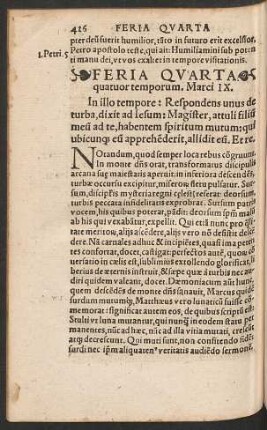 425 FERIA QVARTA
per deũ fuerit humilior, tãto in futuro erit excelsior.
1. Petri. 5 Petro apostolo teste, qui ait: Humiliamini sub poten
ti manu dei, vt vos exaltet in tempore visitationis.
FERIA QVARTA
quatuor temporum. Marci IX.
In illo tempore: Respondens unus de
turba, dixit ad Iesum: Magister, attuli filiũ
meũ ad te, habentem spiritum mutum: qui
ubicunq; eũ apprehẽderit, allidit eũ. Et re.
NOtandum, quod semper loca rebus cõgruunt.
In monte dñs orat, transformatur discipulis
arcana suę maiestatis aperuit: in inferiora descendẽs,
turbæ occursu excipitur, miserorũ fletu pulsatur. Sur
sum, discipľis mysteria regni cęlestis reserat: deorsum,
turbis peccata infidelitatis exprobrat. Sursum, patris
vocem his, quibus poterat, pãdit: deorsum spũs malos
ab his qui vexabãtur, expellit. Qui etiã nunc pro quali
tate meritorũ, alijs ascẽdere, alijs vero nõ desistit descẽ
dere. Nã carnales adhuc & incipiẽtes, quasi ima peten
tes confortat, docet, castigat: perfectos aũt, quorũ con
uersatio in cælis est, sublimius extollendo glorificat, li
berius de æternis instruit, & sæpe quæ à turbis nec au
diri quidem valeant, docet. Dæmoniacum aũt hunc,
quem descẽdẽs de monte dñs sanauit, Marcus quidẽ
surdum mutumq;, Matthæus vero lunaticũ fuisse cõ
memorat: significat autem eos, de quibus scriptũ est:
Stultus vt luna mutantur, qui nunq̃ in eodem statu per
manentes, nũc ad hæc, nũc ad illa vitia mutati, crescũt
atq; decrescunt. Qui muti sunt, non confitendo fidẽ:
surdi nec ipm̃ aliquaten⁹ veritatis audiẽdo sermonẽ.